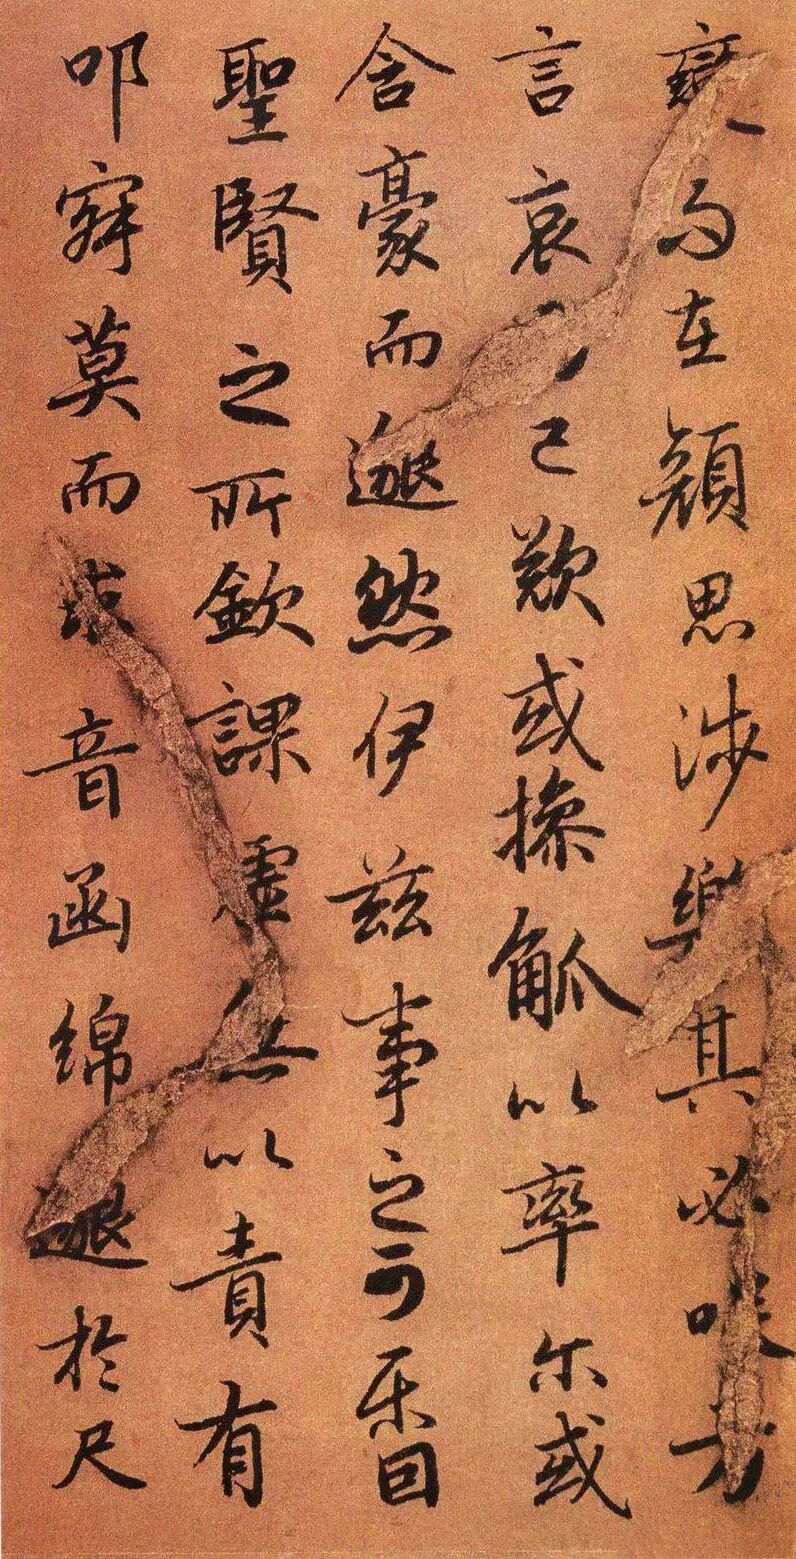 變而在顏思涉樂其必咲方
言哀已歎或操觚以率尔或
含豪而邈然伊茲事之可乐固
聖賢之所欽課虛無以責有
叩寂莫而求音函綿邈於尺